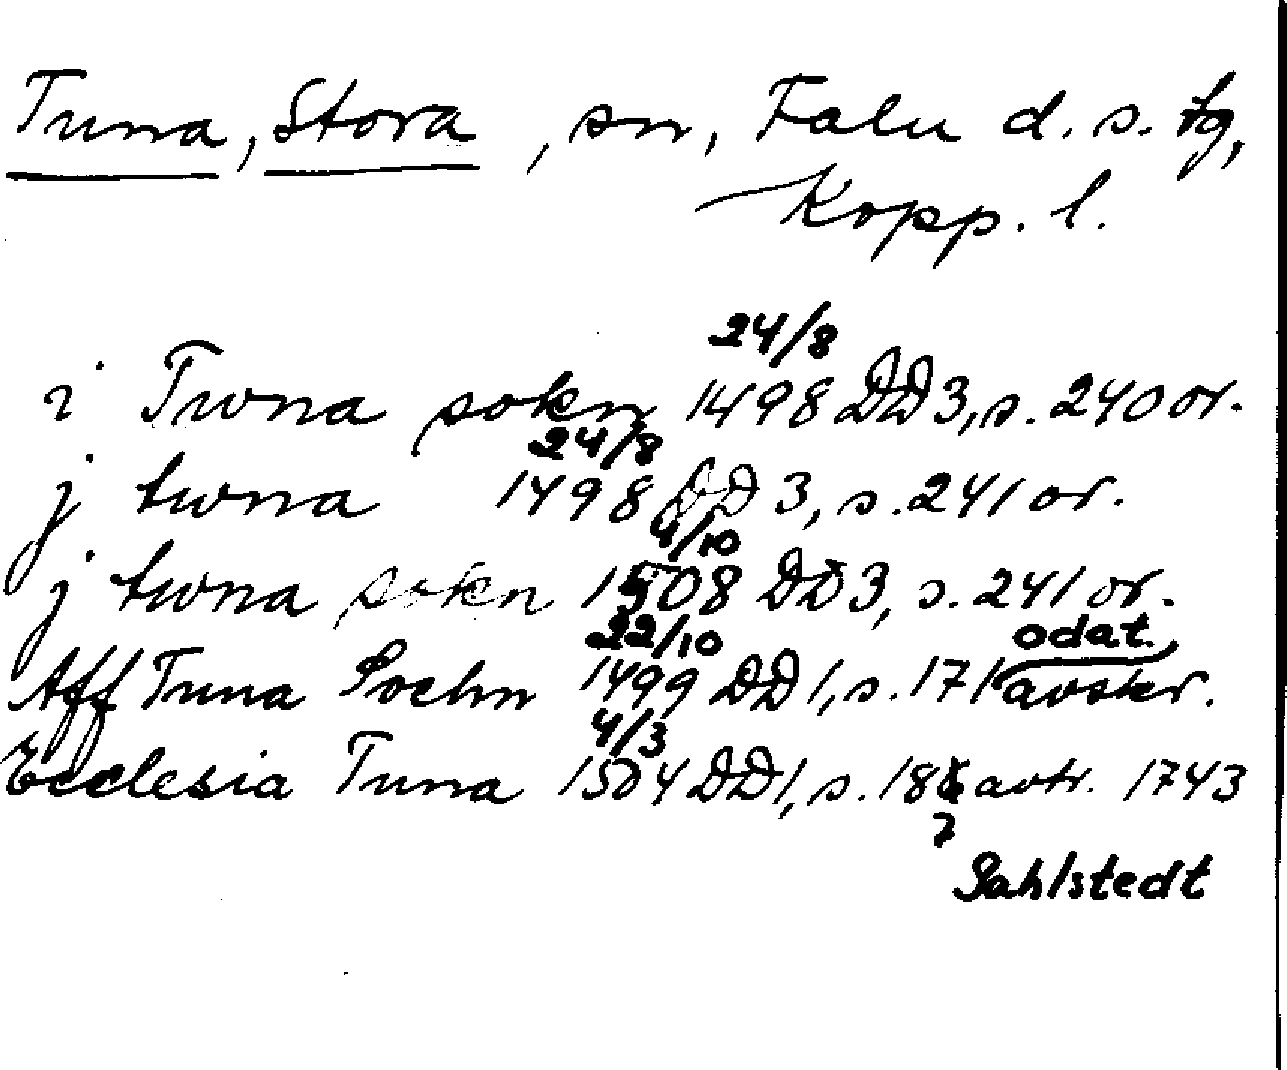 Tuna, Stora, sn, Falu d. s. tg,
Kopp. l.
24/8
i Twna sokn 1498 DD 3, s. 240 or.
24/8
j twna 1498 DD 3, s. 241 or.
4/10
j twna sokn 1508 DD 3, s. 241 or.
22/10 odat.
Aff Tuna Sochn 1499 DD 1, s. 171 avskr.
4/3
Ecclesia Tuna 1504 DD 1, s. 18 avtr. 1743
7
Sahlstedt